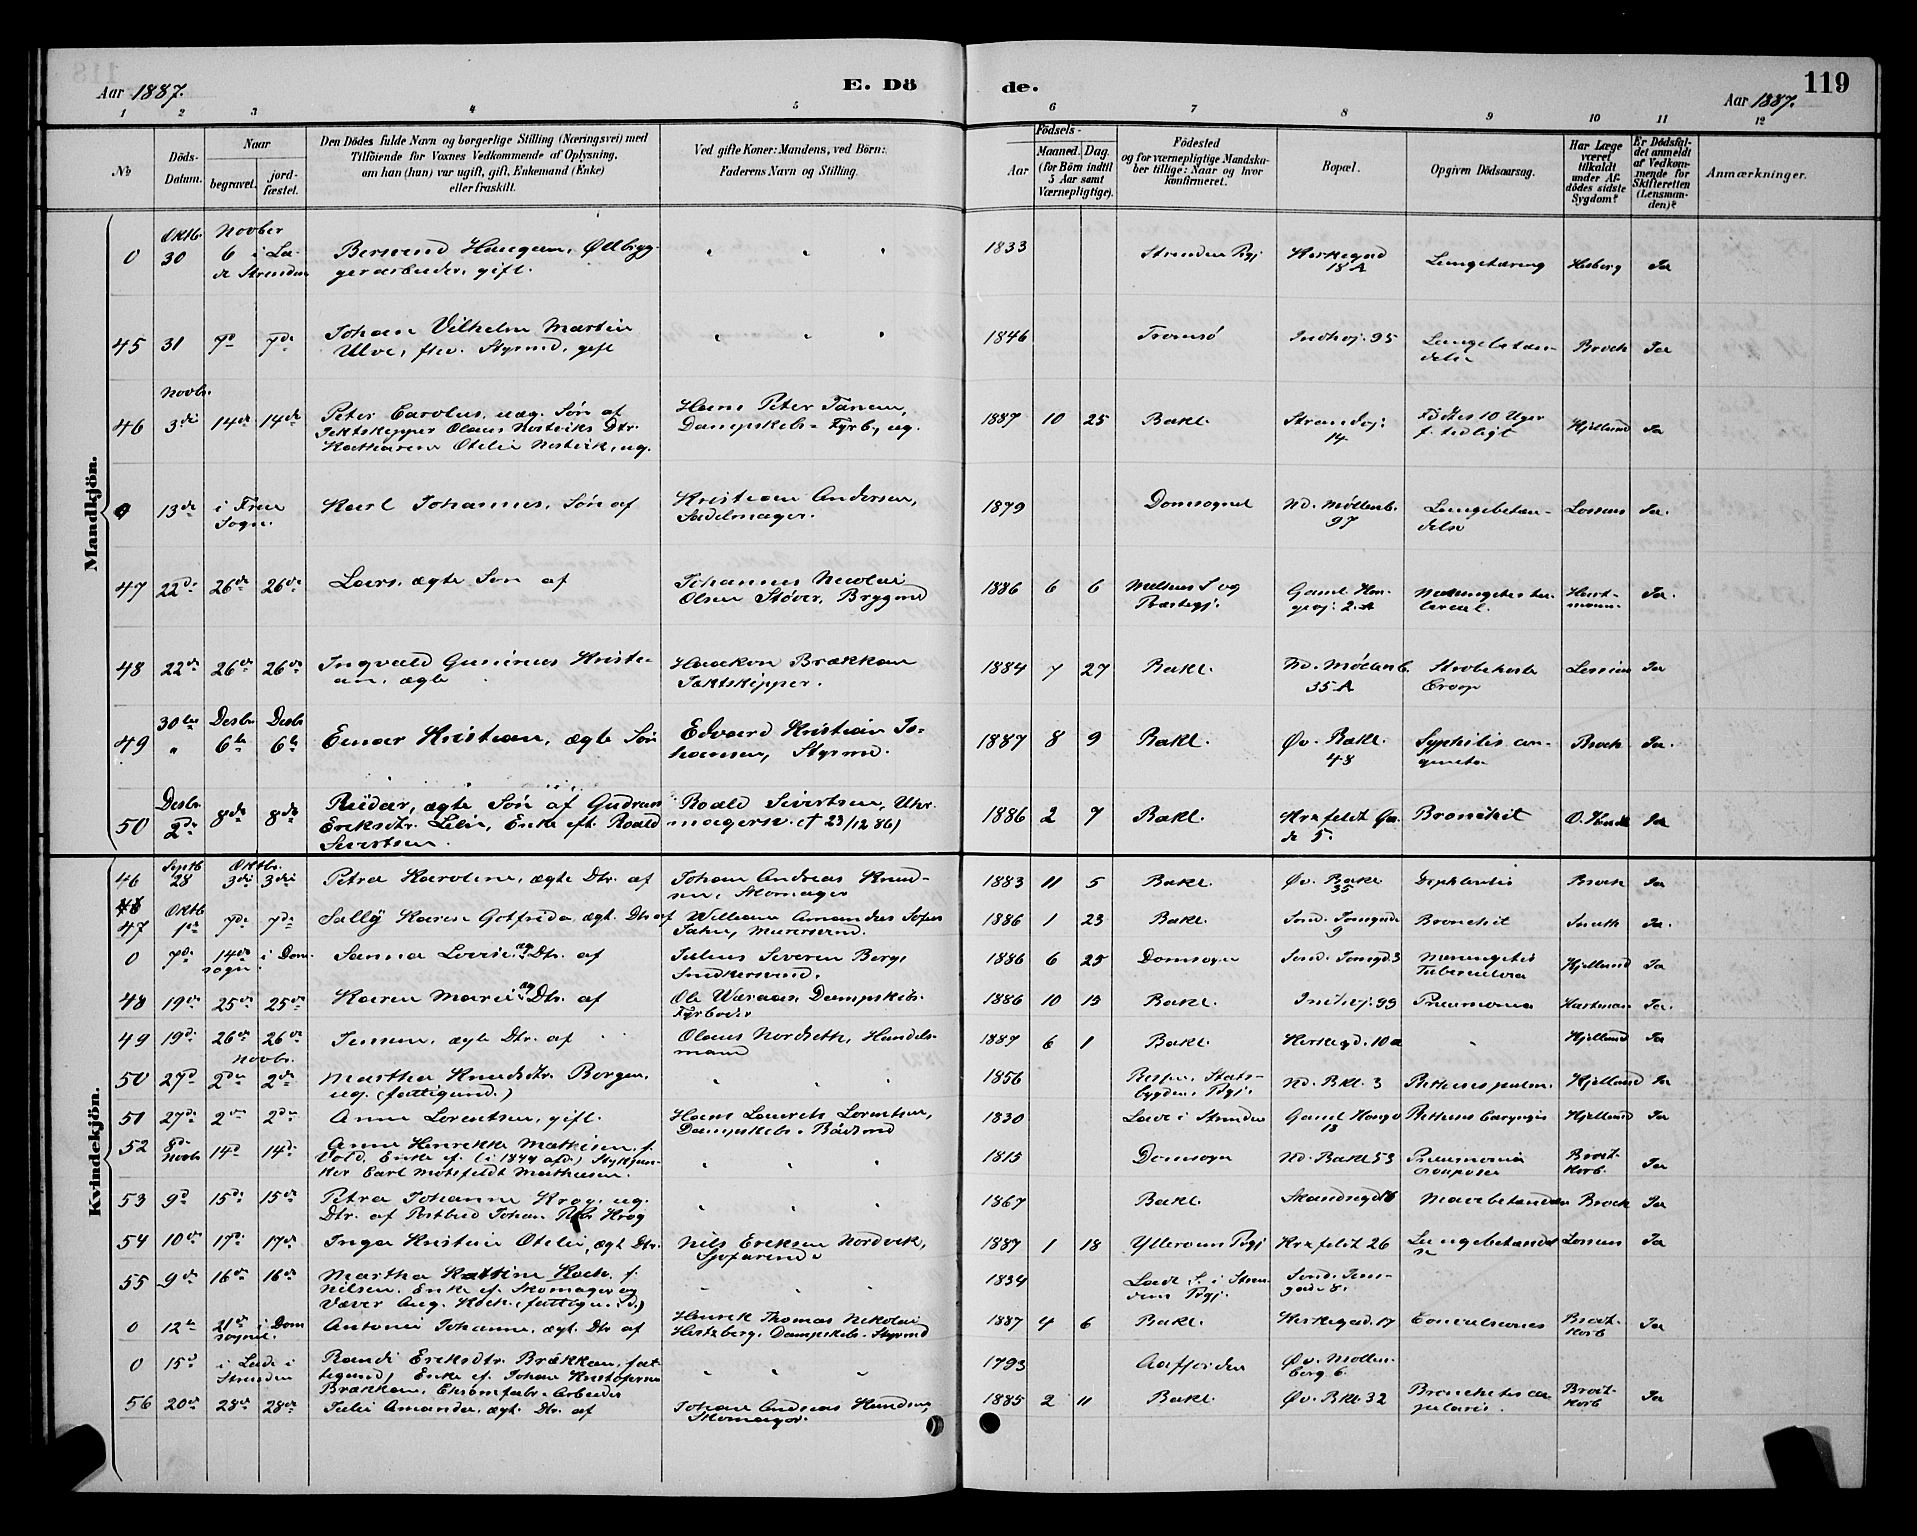 Aar 1887.
E. Dö
de.
Aar 1887.
119
1 2 3 4 5 6 7 8 9 10 11 12
No
Döds-Datum.
Naar
begravet.
jord-fæstet.
Den Dödes fulde Navn og borgerlige Stilling (Næringsvei) med
Tilföiende for Voxnes Vedkommende af Oplysning,
om han (hun) var ugift, gift, Enkemand (Enke)
eller fraskilt.
Ved gifte Koner: Mandens, ved Börn:
Faderens Navn og Stilling.
Födsels-
Aar
Maaned. Dag.
(for Börn indtil
5 Aar samt
Værnepligtige).
Födested
og for værnepligtige Mandska-
ber tillige: Naar og hvor
konfirmeret.
Bopæl.
Opgiven Dödsaarsag.
Har Læge
været
tilkaldt
under Af-
dödes sidste
Sygdom?
Er Dödsfal-
det anmeldt
af Vedkom-
mende for
Skifteretten
(Lensman-
den)?
Anmærkninger.
Mandkjön.
0 Oktb. 30 Novber 6 i La-de Strinden Bersvend Haugan, Ølbryg-gerarbeider, gift. " " " 1833 Strinden Pgj Kirkegad 18 A Lungetæring Hesberg Ja
45 31 7d 7de Johan Vilhelm Martin Ulve, fhv. Styrmd, gift " " " 1846 Tromsø Indhvj. 95 Lungebetæn-delse Broch Ja
46 Novbr. 3die 14de 14de Peter Carolus, uæg. Søn af Jektskipper Olaus Dtr. Otelie ug. Hans Peter Tanem, Dampskibs-Fyrb., ug. 1887 10 25 Bakl. Strandvj: 14 Fødtes 10 Uger f. tidligt Hjellund Ja
0 13de i Frue Sogn. Karl Johannes, Søn af Kristian Andersen, Sadelmager. 1879 Domsognet Nd. Møllenb. 97 Lungebetæn-delse Ja.
47 22de 26de 26de Lars, ægte Søn af Johannes Nicolai Olsen Støver, Brygmd 1886 6 6 Melhus S og Præstegj. Gaml. Kon-gevj: 2 A Hart-mann Ja.
48 22de 26de 26de Ingvald Gunerius Kristi-an, ægte Haakon Brækkan Jæktskipper. 1884 7 27 Bakl. Nd. Møllenb. 35 A Strubehoste Croup Ja
49 30te " Desbr 6te Desbr 6te Einar Kristian, ægte Søn Edvard Kristian Jo-hansen, Styrmd. 1887 8 9 Bakl. Øv. Bakl. 48 Syphilis con-genita Broch Ja.
50 Desbr 2de 8de 8de Reidar, ægte Søn af Gudrun Eriksdtr. Enke eft. Roald Sivertsen. Roald Sivertsen, Uhr-magersv. († 23/12 86) 1886 2 7 Bakl. Krxfeldt Ga-de 5. Bronchit Ja
Kvindekjön.
46 Septb 28 Oktbr. 3die 3die Petra Karoline, ægte Dtr. af Johan Andreas Knud-sen, Skomager 1883 11 5 Bakl. Øv. Bakl 35 Broch Ja
47 Oktb 1ste 7de 7de Sally Karen Gotfrida ægt. Dtr af William Amandus Murersvend. 1886 1 23 Bakl. Sond. 9 Bronchit Ja.
0 7de 14de i Dom-sogn. Sanna Lovise, æg Dtr. af Julius Severin Berg, Snedkersvend. 1886 6 25 Domsogn Meningitis Tuberculosa Hjellund Ja
48 19de 25de 25de Karen Marie æg Dtr. af Ole Dampskibs-Fyrbøder 1886 10 15 Bakl. Indhvj. 99 Pneumonia Hartman Ja.
49 19de 26de 26de Jensine, ægte Dtr. af Olaus Nordseth, Handels-mand 1887 6 1 Bakl. Kirkegd. 10 a " Hjellund Ja
50 27d Novbr. 2den 2de Martha Knudsdtr. Borgen, ug. (fattigund.) " " " 1856 Stats-bygden Pgj. Nd. Bkl. 3 Hjellund Ja
51 27de 2de 2den Anne Lorentsen, gift. Hans Laurits Lorentsen, Dampskibs-Baadsmd 1830 Lade i Strinden Gaml. Kongv 13 Hjellund Ja
52 8de Novb 14d 14de Anne Henrikke Mathisen, f. Vold, Enke ef. (i 1844 afd.) Carl Motzfeldt Mathiesen. " " " 1815 Domsogn Nd. Bakl 53 Pneumonia crouposa Broit-korb Ja
53 9d 15de 15de Petra Johanne Krog, ug. Dtr. af Postbud Johan Krog " " " 1867 Bakl. Mavebetændelse Broch Ja
54 10de 17de 17de Inga Kristine Otelie, ægt Dtr. Nils Eriksen Nordvik, Sjøfarende 1887 1 18 Ytterøens Pgj Krxfeldt 26 Lungebetændelse Ja
55 9de 16de 16de Martha Kattine Koch, f. Nilsen, Enke ef. Skomager og Væver Aug. Koch, (fattigund.) " " 1834 Lade S. i Strin-dens Pgj. Sond. Jons-gade 8.
0 12te 21de i Dom-sognet. Antonie Johanne, ægt. Dtr af Henrik Thomas Nikolai Hertzberg, Dampskibs-Styrmd 1887 4 6 Bakl. Kirkegad. 17 Convulsiones Broit-korb Ja
0 15d i Lade i Strinden Randi Eriksdtr. Brækkan, fat-tigund, Enke ef. Johan Kristofersen Brækkan, Arbeider " " " 1793 Aafjorden Øv. Møllen-berg 6.
56 20de 28de 28de Julie Amanda, ægt. Dtr. af Johan Andreas Knudsen, Skomager. 1885 2 11 Bakl. Øv. Bkl. 32 Bronchitis ca-pillaris. Broit-korb Ja